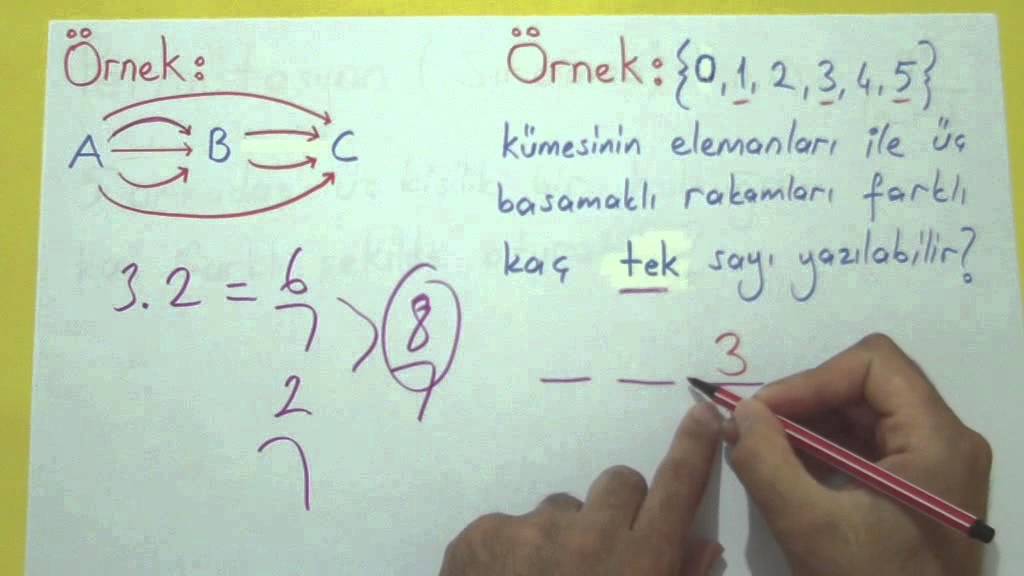 Örnek:
A B C
3.2 = 6
8
2
Örnek: {0, 1, 2, 3, 4, 5}
kümesinin elemanları ile üç
basamaklı rakamları farklı
kaç tek sayı yazılabilir?
_ _ 3